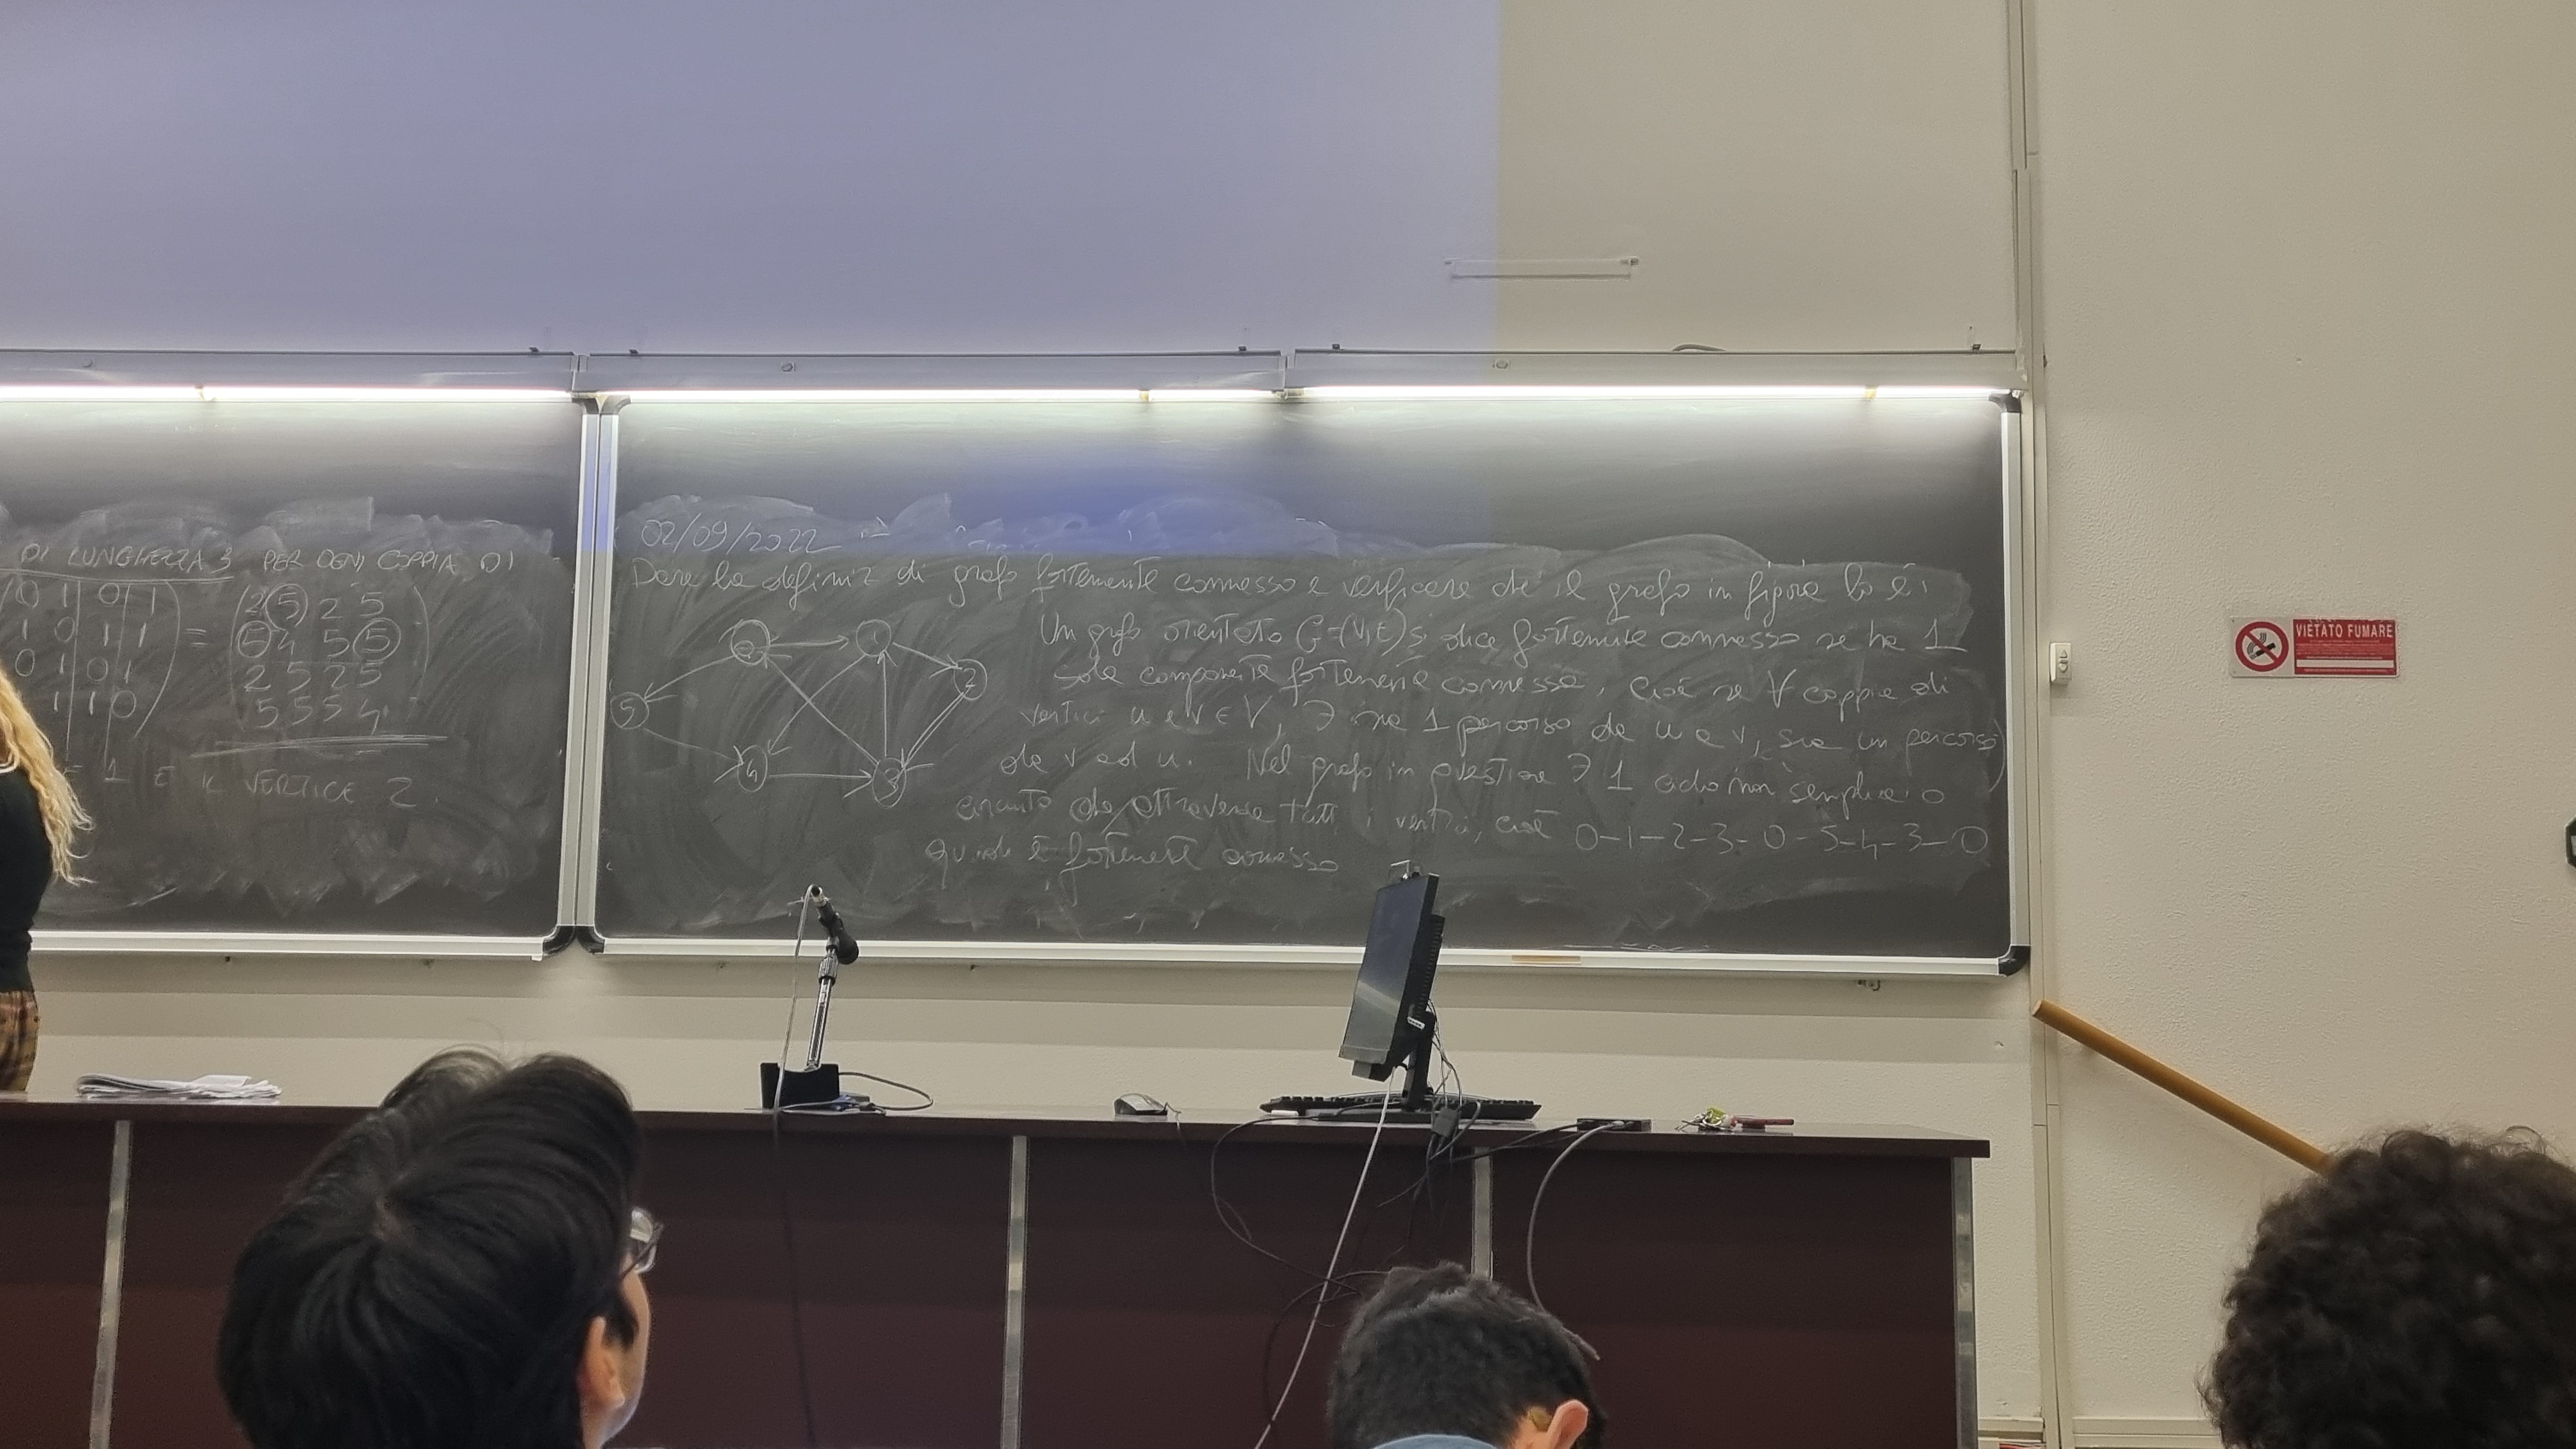 DI LUNGHEZZA 3 PER OGNI COPPIA DI
0 1 0 1
1 0 1 1 =
0 1 0 1
1 1 0
2 5 2 5
5 4 5 5
2 5 2 5
5 5 5 4
1 È IL VERTICE 2.
02/09/2022
Dare la definiz di grafo fortemente connesso e verificare che il grafo in figura lo è:
0
1
2
5
4
3
Un grafo orientato G=(V,E) si dice fortemente connesso se ha 1
sola componente fortemente connessa, cioè se ∀ coppia di
vertici u e v ∈ V, ∃ sia 1 percorso da u a v, sia un percorso
da v ad u. Nel grafo in questione ∃ 1 ciclo non semplice o
circuito che attraversa tutti i vertici, cioè 0-1-2-3-0-5-4-3-0
quindi è fortemente connesso
VIETATO FUMARE